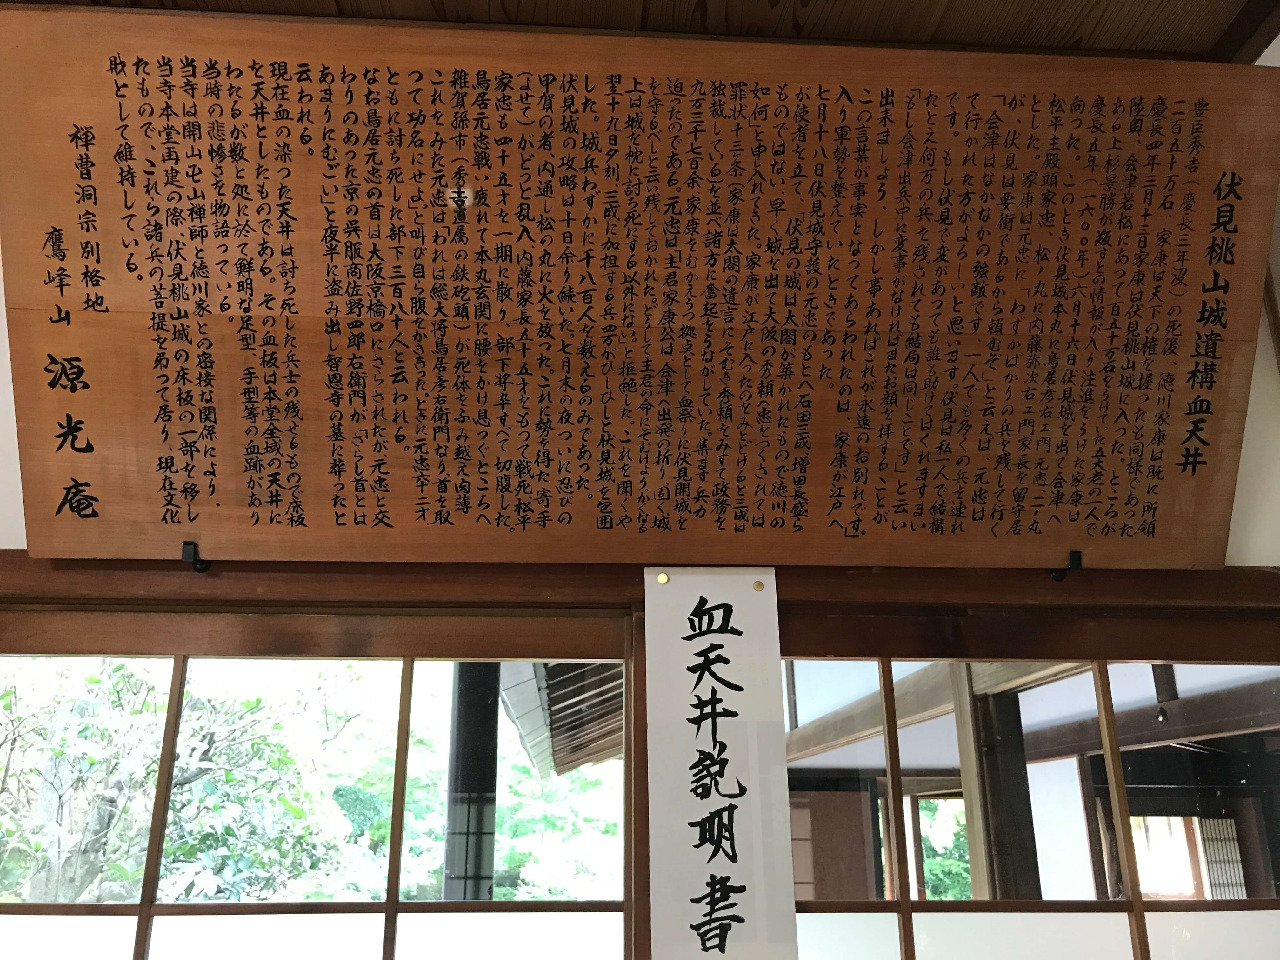 伏見桃山城遺構血天井
豊臣秀吉(慶長三年歿)の死後 徳川家康は既に所領
二百五十万石、家康は天下の権を握ったも同様であった
慶長四年三月十三日家康は伏見桃山城に入った。ところが
陸奥、会津若松にあって百五十万石をうけていた五大老の一人で
ある上杉景勝が叛すとの情報が入り注進をうけた家康は
慶長五年(一六〇〇年)六月十六日伏見城を出て会津へ
向った。このとき伏見城本丸に鳥居彦右ェ門元忠、二ノ丸
松平主殿頭家忠、松ノ丸に内藤弥次右ェ門家長を留守居
とした。家康は元忠に「わずかばかりの兵を残して行く
が、伏見は要衝であるから頼むぞ」と云えば、元忠は
「会津はなかなかの強敵です。一人でも多くの兵を連れ
て行かれた方がよろしいと思います。伏見は私一人で結構
です。もし伏見で変があっても誰も助けてはくれますまい
たとえ何万の兵を残されても結局は同じことです」と云い
「もし会津出兵中に変事がなければまたお顔を拝することが
出来ましょう、しかし事あればこれが永遠のお別れです。」
この言葉が事実となってあらわれたのは、家康が江戸へ
入り軍勢を整えていたときであった。
七月十八日伏見城守護の元忠のもとへ石田三成、増田長盛ら
が使者を立て、「伏見の城は太閤が築かれたもので徳川の
ものではない、早く城を出て大阪の秀頼に忠をつくされては
如何」と申入れてきた。家康が江戸に入ったのをみとどけると三成は
罪状十三ヶ条(家康は太閤の遺言にそむき秀頼をみすてて政務を
独裁している)を並べ諸方に奮起をうながしていた。集ます兵力
九万三千七百余、家康をむかえうつ拠点として血祭りに伏見開城を
迫ったのである。元忠は「主君家康公は、会津出発の折り固く城
を守るべしと云い残しておかれた。どうして主君の命にそむけようか、かくなる
上は城を枕に討ち死にする以外にない」と拒絶した、これを聞くや
翌十九日夕刻、三成に加担する兵四万がひしひしと伏見城を包囲
した。城兵わずかに千八百人を数えるのみであった。
伏見城の攻略は十日余り続いた、七月末の夜ついに忍びの
甲賀の者、内通し松の丸に火を放った。これに勢を得た寄手
(よせて)がどっと乱入、内藤家長五十五才をもって戦死、松平
家忠も四十五才を一期に散り、部下将卒すべて切腹した。
鳥居元忠戦い疲れて本丸玄関に腰をかけ息つぐところへ
雑賀孫市(秀吉直属の鉄砲頭)が死体をふみ越え肉薄
これをみた元忠は「われは総大将鳥居彦右衛門なり首を取
って功名にせよ」と叫び自ら腹をかきさいた。ときに元忠六十二才
ともに討ち死した部下三百八十人と云われる。
なお鳥居元忠の首は大阪京橋口にさらされたが元忠と交
わりのあった京の呉服商佐野四郎右衛門が「さらし首とは
あまりにむごい」と夜半に盗み出し智恩寺の墓に葬ったと
云われる。
現在血の染った天井は討ち死した兵士の残せるもので床板
を天井としたものである。その血板は本堂全域の天井に
わたるが数ヶ処に於て鮮明な足型、手型等の血跡があり
当時の悲惨さを物語っている。
当寺は開山卍山禅師と徳川家との密接な関係により、
当寺本堂再建の際、伏見桃山城の床板の一部を移し
たもので、これら諸兵の菩提を弔って居り、現在文化
財として維持している。
禅曹洞宗別格地
鷹峰山 源光庵
血天井説明書